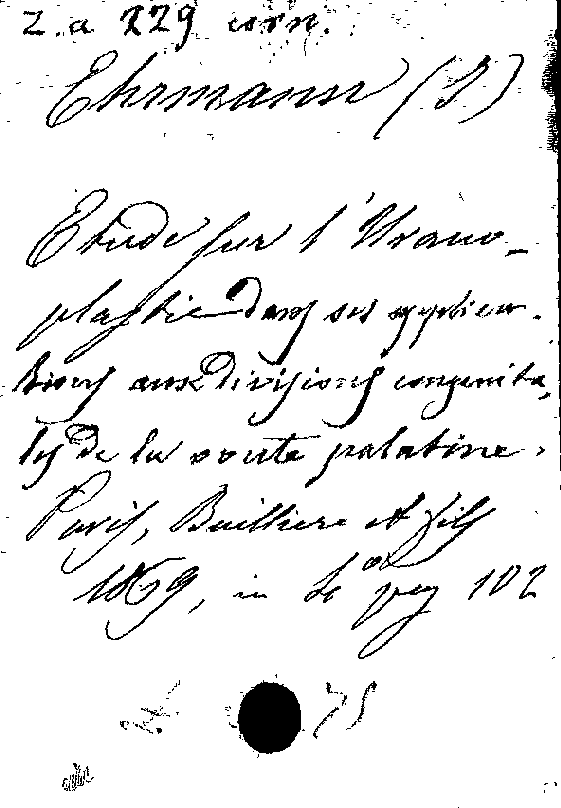 2. a 229 corn.
Ehrmann (J)
Etude sur l'Urano-
plastie dans ses applica-
tions aux divisions congenita-
les de la voute palatine.
Paris, Bailliere et fils
1869, in 4° pag 102
75